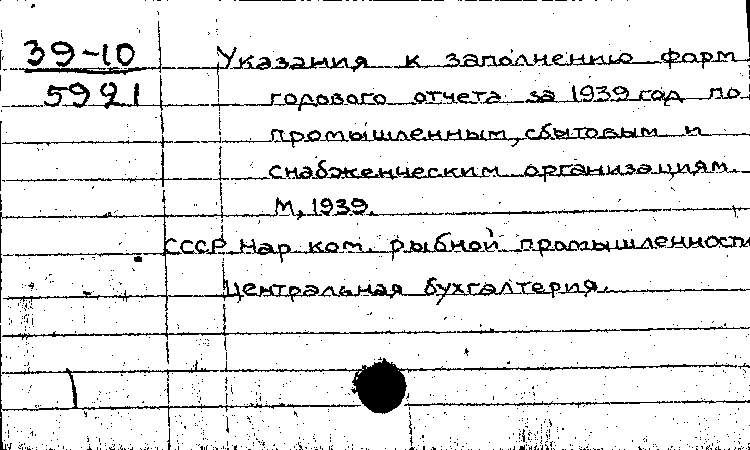 39-10 Указания к заполнению форм
5921 годового отчета за 1939 год по
промышленным, сбытовым и
снабженческим организациям.
М, 1939.
СССР. Нар. ком. рыбной промышленности
Центральная бухгалтерия.